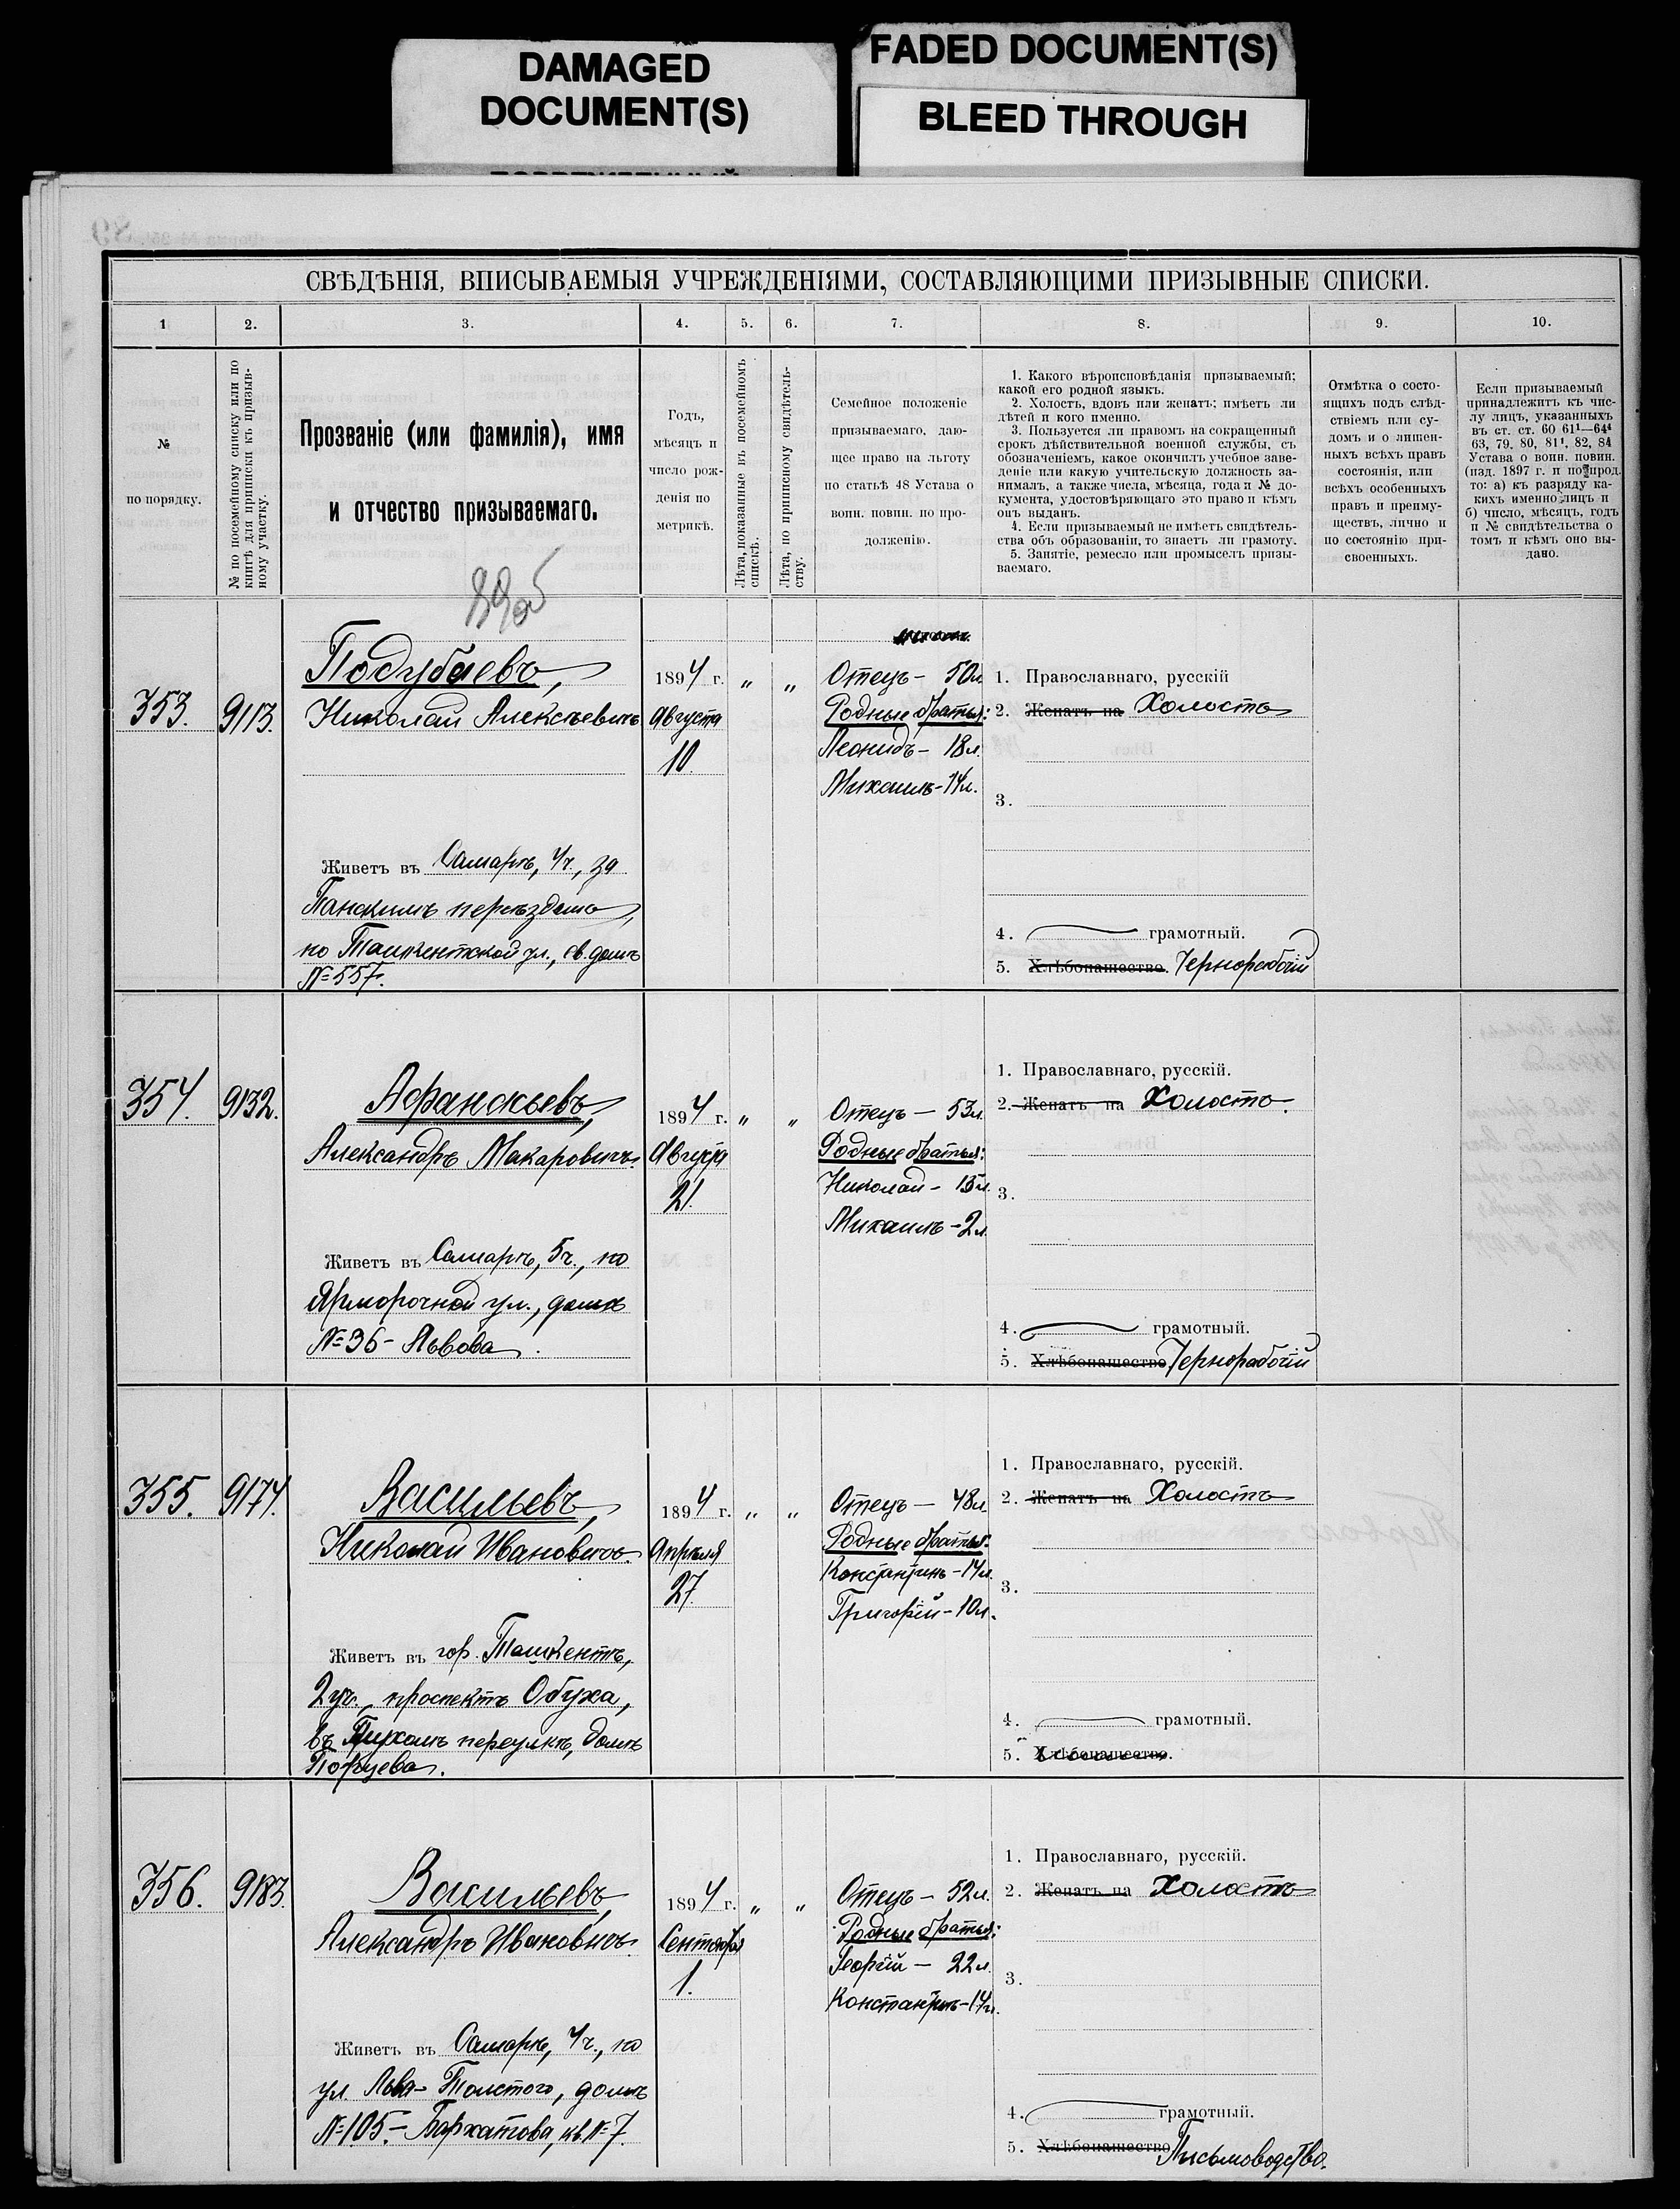 DAMAGED
DOCUMENT(S)
FADED DOCUMENT(S)
BLEED THROUGH
СВѢДѢНІЯ, ВПИСЫВАЕМЫЯ УЧРЕЖДЕНІЯМИ, СОСТАВЛЯЮЩИМИ ПРИЗЫВНЫЕ СПИСКИ.
1 2. 3. 4. 5. 6. 7. 8. 9. 10.
№
по порядку.
№ по посемейному списку или по
книгѣ для приписки къ призыв-
ному участку.
Прозваніе (или фамилія), имя
и отчество призываемаго.
Годъ,
мѣсяцъ и
число рож-
денія по
метрикѣ.
Лѣта, показанные въ посемейномъ
спискѣ.
Лѣта, по приписному свидѣтель-
ству.
Семейное положеніе
призываемаго, даю-
щее право на льготу
по статьѣ 48 Устава о
воин. повин. по про-
долженію.
1. Какого вѣроисповѣданія призываемый;
какой его родной языкъ.
2. Холостъ, вдовъ или женатъ; имѣетъ ли
дѣтей и кого именно.
3. Пользуется ли правомъ на сокращенный
срокъ дѣйствительной военной службы, съ
обозначеніемъ, какое окончилъ учебное заве-
деніе или какую учительскую должность за-
нималъ, а также числа, мѣсяца, года и № до-
кумента, удостовѣряющаго это право и кѣмъ
онъ выданъ.
4. Если призываемый не имѣетъ свидѣтель-
ства объ образованіи, то знаетъ ли грамоту.
5. Занятіе, ремесло или промыселъ призы-
ваемаго.
Отмѣтка о состо-
ящихъ подъ слѣд-
ствіемъ или су-
домъ и о лишен-
ныхъ всѣхъ правъ
состоянія, или
всѣхъ особенныхъ
правъ и преиму-
ществъ, лично и
по состоянію при-
своенныхъ.
Если призываемый
принадлежитъ къ чис-
лу лицъ, указанныхъ
въ ст. ст. 60 61¹—64⁴
63, 79, 80, 81¹, 82, 84
Устава о воин. повин.
(изд. 1897 г. и по прод.
то: а) къ разряду ка-
кихъ именно лицъ и
б) число, мѣсяцъ, годъ
и № свидѣтельства о
томъ и кѣмъ оно вы-
дано.
89об
353. 9113.
Подубаевъ,
Николай Алексѣевичъ
1894 г.
Августа
10.
" "
Отецъ – 50 л.
Родные братья:
Леонидъ – 18 л.
Михаилъ – 14 л.
1. Православнаго, русскій
2. Женатъ на Холостъ
3.
4. грамотный.
5. Хлѣбопашество. Чернорабочій
Живетъ въ Самарѣ, 4 ч., за
Панскимъ переѣздомъ,
по Ташкентской ул., св. домъ
№ 557.
354. 9132.
Афанасьевъ,
Александръ Макаровичъ.
1894 г.
Августа
21.
" "
Отецъ – 53 л.
Родные братья:
Николай – 15 л.
Михаилъ – 2 л.
1. Православнаго, русскій.
2. Женатъ на Холостъ.
3.
4. грамотный.
5. Хлѣбопашество Чернорабочій
Живетъ въ Самарѣ, 5 ч., по
Ярморочной ул., домъ
№ 36 – Львова.
355. 9174.
Васильевъ,
Николай Ивановичъ.
1894 г.
Апрѣля
27.
" "
Отецъ – 48 л.
Родные братья:
Константинъ – 14 л.
Григорій – 10 л.
1. Православнаго, русскій.
2. Женатъ на Холостъ
3.
4. грамотный.
5. Хлѣбопашество.
Живетъ въ гор. Ташкентъ,
2 уч., проспектъ Обуха,
въ переулкѣ, домъ
356. 9183.
Васильевъ,
Александръ Ивановичъ.
1894 г.
Сентября
1.
" "
Отецъ – 52 л.
Родные братья:
Георгій – 22 л.
Константинъ – 14 л.
1. Православнаго, русскій.
2. Женатъ на Холостъ
3.
4. грамотный.
5. Хлѣбопашество Письмоводство.
Живетъ въ Самарѣ, 4 ч., по
ул. Льва-Толстого, домъ
№ 105. – Бархатова, кв. № 7.